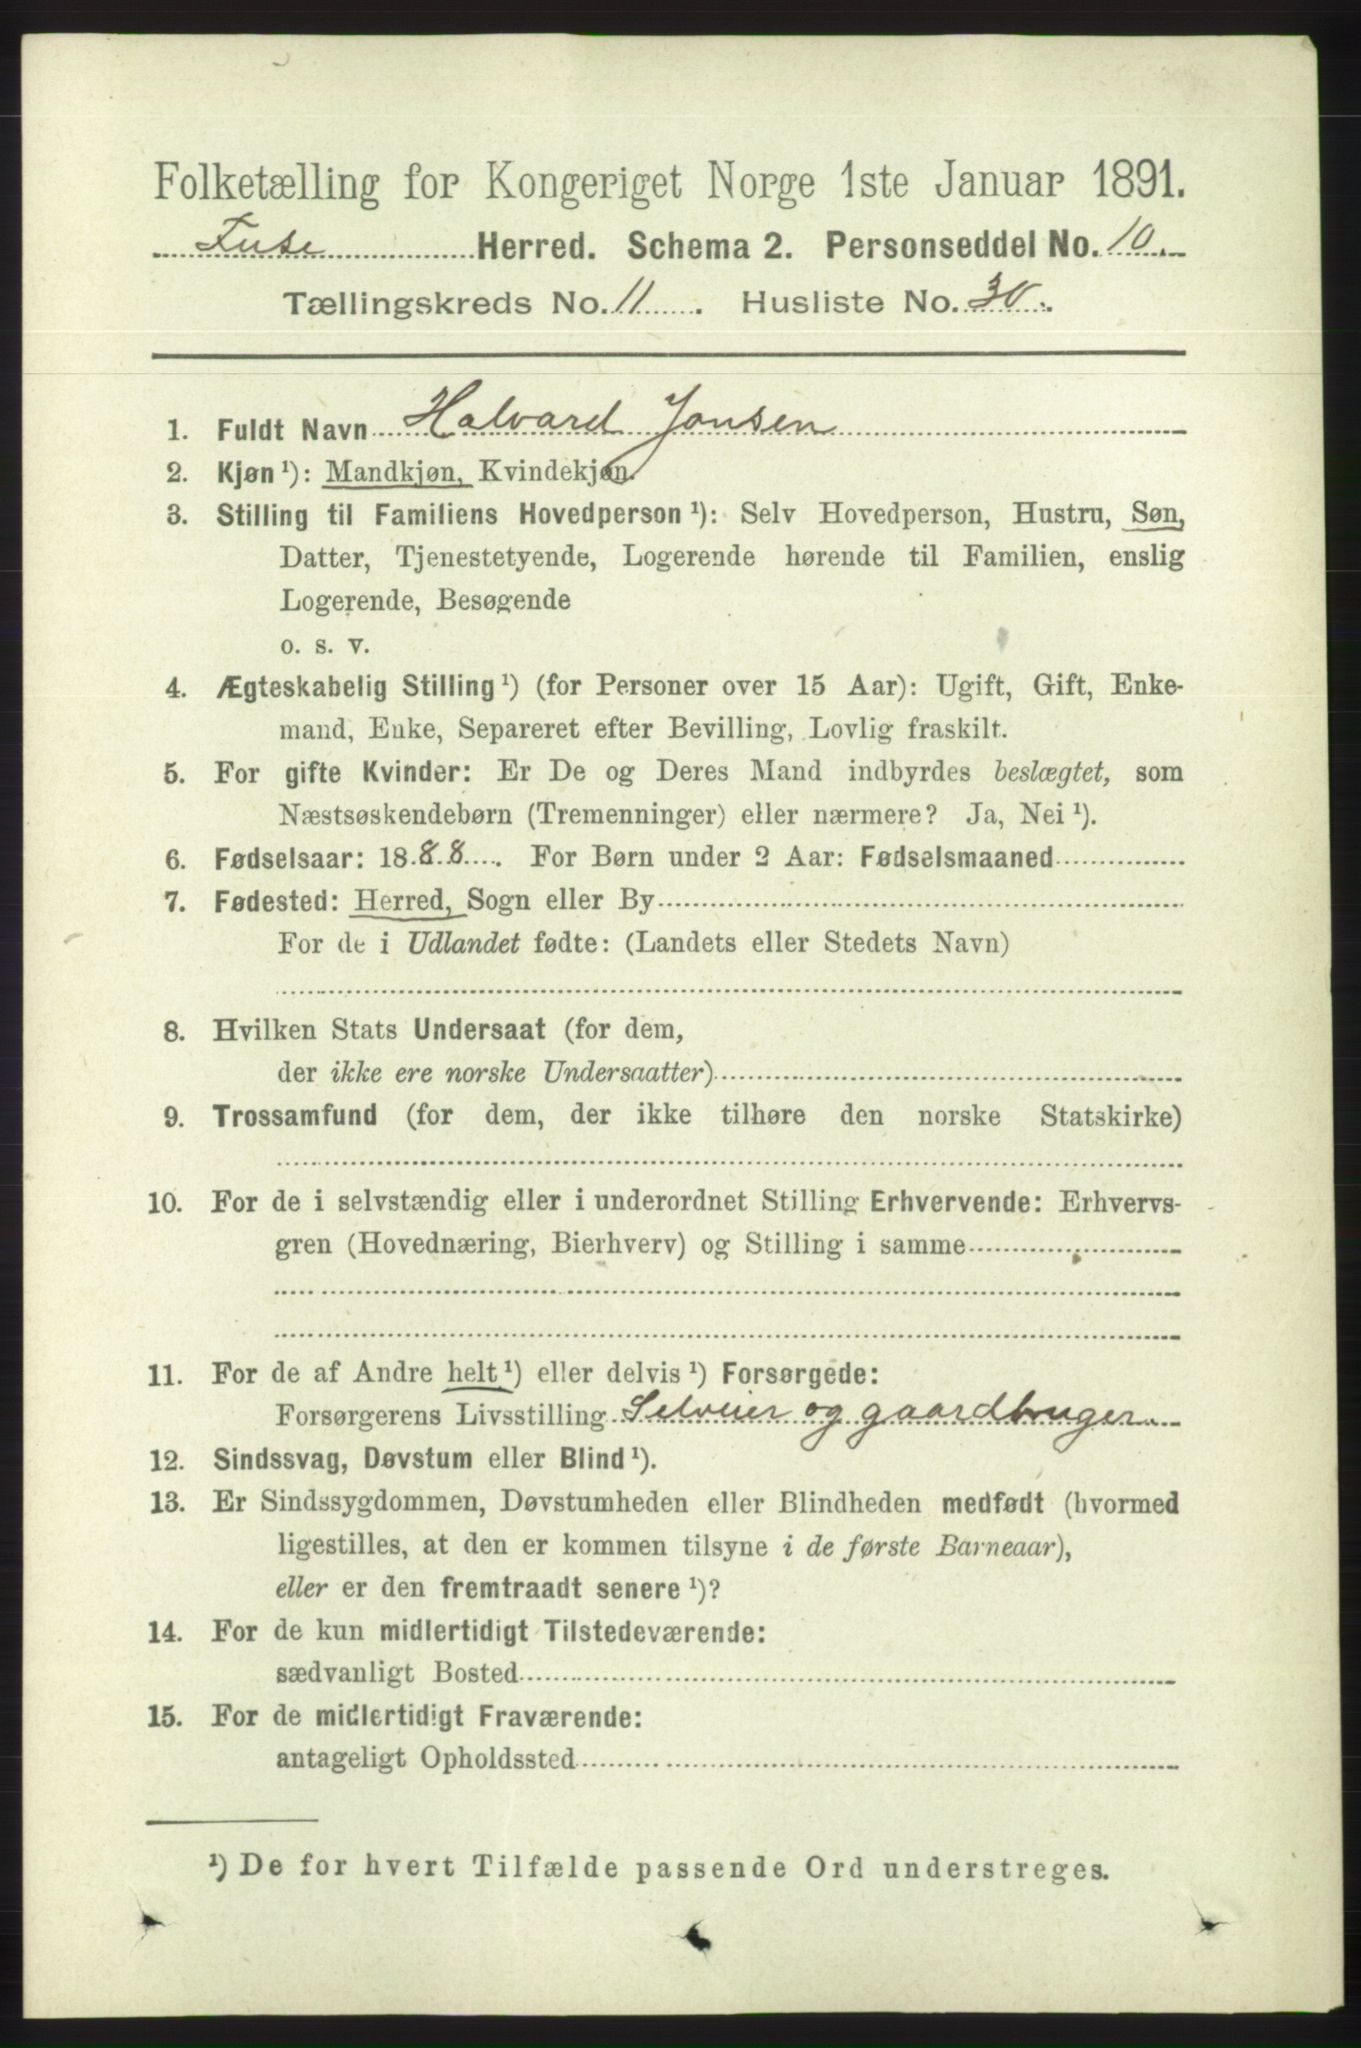 Folketælling for Kongeriget Norge 1ste Januar 1891.
Fuse Herred. Schema 2. Personseddel No. 10.
Tællingskreds No. 11. Husliste No. 30.
1. Fuldt Navn Halvard Jonsen
2. Kjøn ¹): Mandkjøn, Kvindekjøn.
3. Stilling til Familiens Hovedperson ¹): Selv Hovedperson, Hustru, Søn,
Datter, Tjenestetyende, Logerende hørende til Familien, enslig
Logerende, Besøgende
o. s. v.
4. Ægteskabelig Stilling ¹) (for Personer over 15 Aar): Ugift, Gift, Enke-
mand, Enke, Separeret efter Bevilling, Lovlig fraskilt.
5. For gifte Kvinder: Er De og Deres Mand indbyrdes beslægtet, som
Næstsøskendebørn (Tremenninger) eller nærmere? Ja, Nei ¹).
6. Fødselsaar: 1888. For Børn under 2 Aar: Fødselsmaaned
7. Fødested: Herred, Sogn eller By
For de i Udlandet fødte: (Landets eller Stedets Navn)
8. Hvilken Stats Undersaat (for dem,
der ikke ere norske Undersaatter)
9. Trossamfund (for dem, der ikke tilhøre den norske Statskirke)
10. For de i selvstændig eller i underordnet Stilling Erhvervende: Erhvervs-
gren (Hovednæring, Bierhverv) og Stilling i samme
11. For de af Andre helt ¹) eller delvis ¹) Forsørgede:
Forsørgerens Livsstilling Selveier og gaardbruger.
12. Sindssvag, Døvstum eller Blind ¹).
13. Er Sindssygdommen, Døvstumheden eller Blindheden medfødt (hvormed
ligestilles, at den er kommen tilsyne i de første Barneaar),
eller er den fremtraadt senere ¹)?
14. For de kun midlertidigt Tilstedeværende:
sædvanligt Bosted
15. For de midlertidigt Fraværende:
antageligt Opholdssted
¹) De for hvert Tilfælde passende Ord understreges.